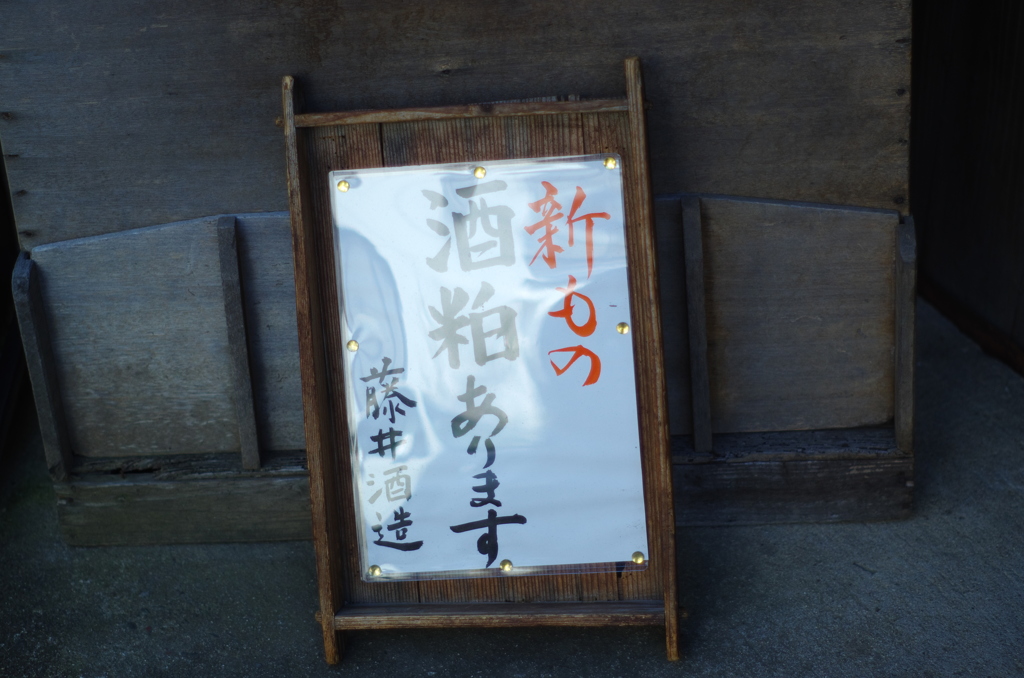 新もの
酒粕あります
藤井酒造